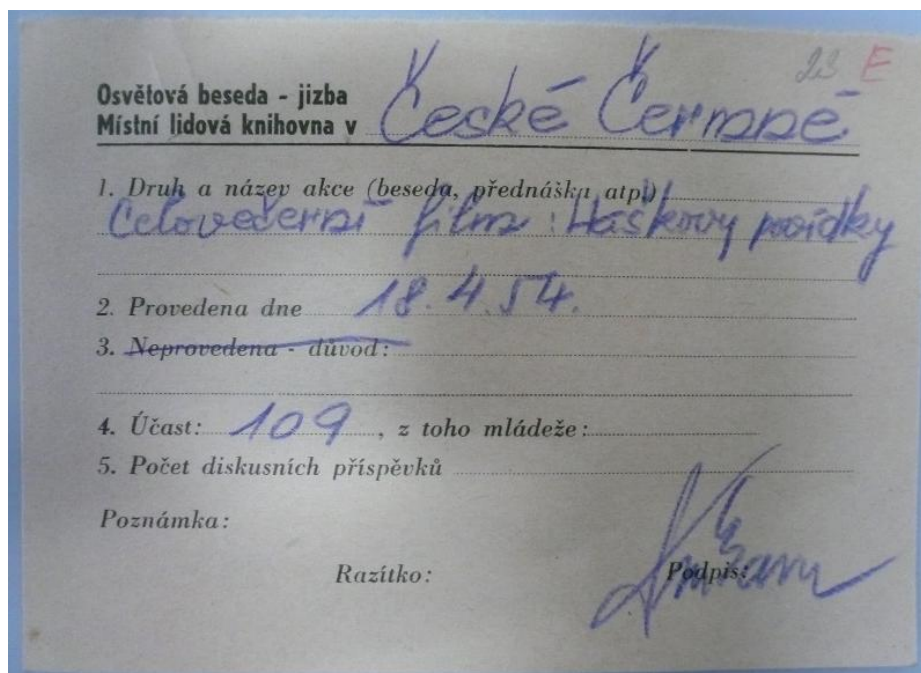 23 E
Osvětová beseda - jizba
Místní lidová knihovna v České Čermné
1. Druh a název akce (beseda, přednáška atp.)
Celovečerní film: Haškovy povídky
2. Provedena dne 18.4.54.
3. Neprovedena - důvod:
4. Účast: 109, z toho mládeže:
5. Počet diskusních příspěvků
Poznámka:
Razítko: Podpis: